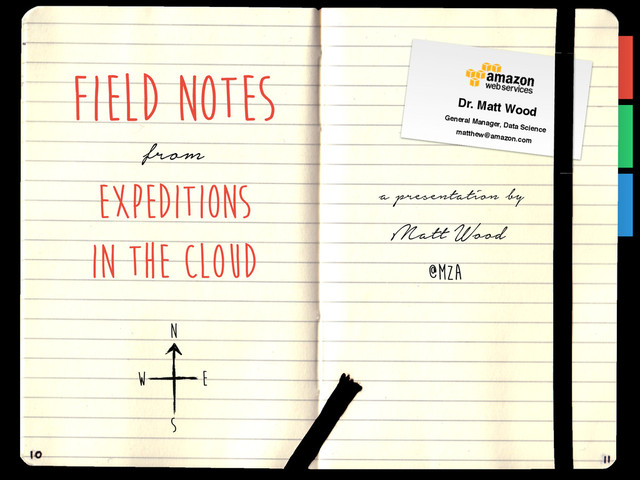 FIELD NOTES
from
EXPEDITIONS
IN THE CLOUD
N
W E
S
10
amazon
webservices
Dr. Matt Wood
General Manager, Data Science
matthew@amazon.com
a presentation by
Matt Wood
@MZA
11